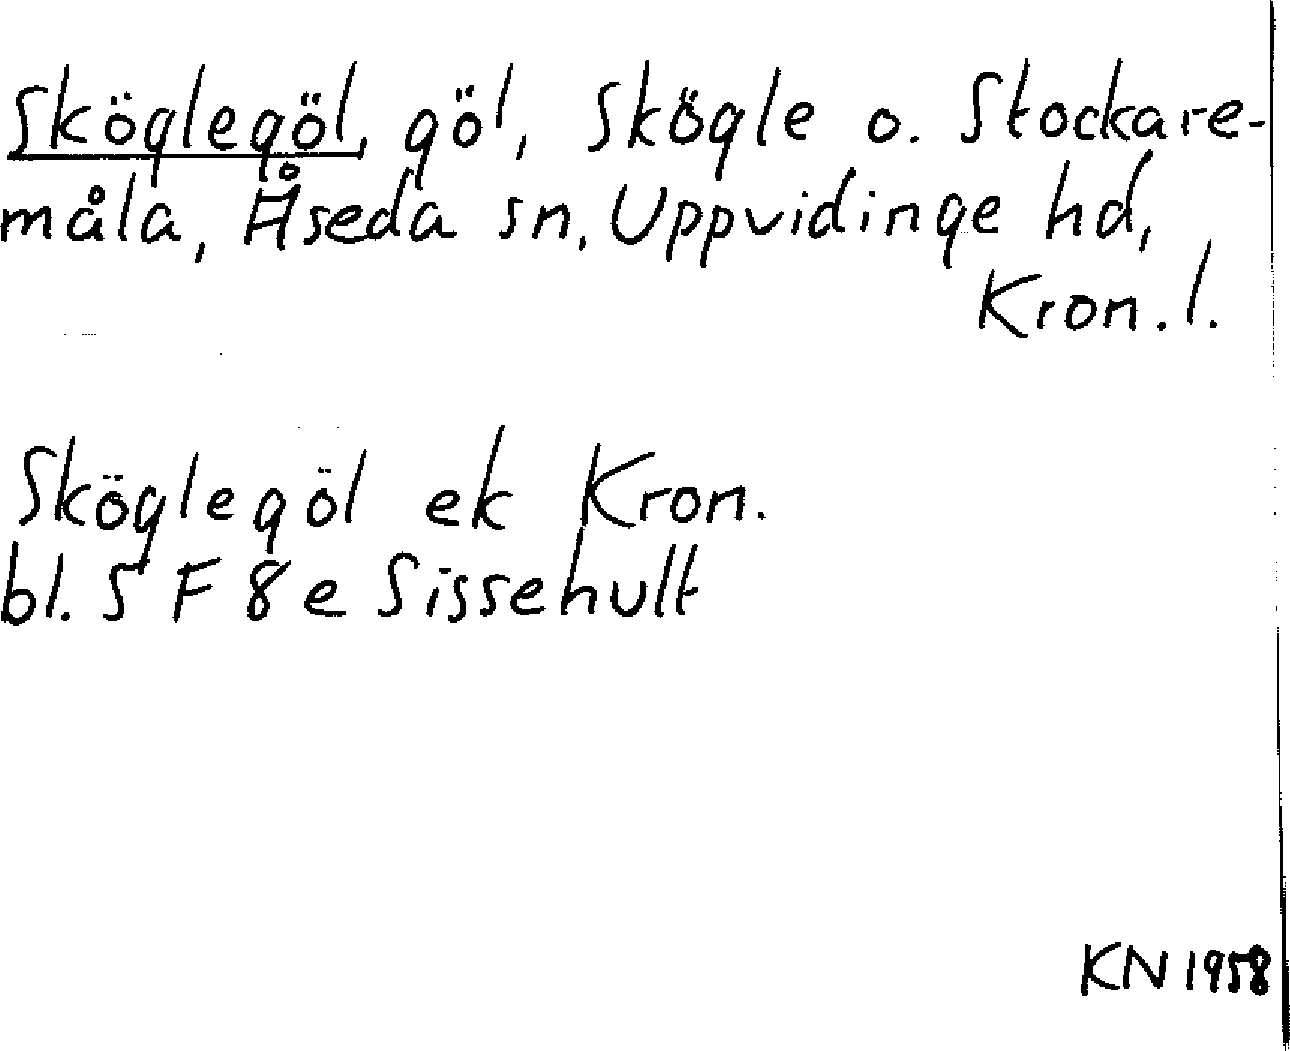 Sköglegöl, göl, Skögle o. Stockare-
måla, Åseda sn, Uppvidinge hd,
Kron. l.
Sköglegöl ek Kron.
bl. 5 F 8 e Sissehult
KN 1958